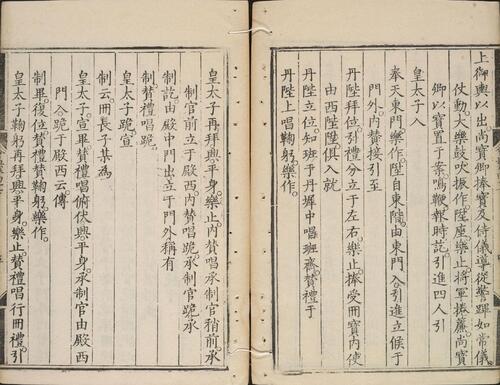 上御輿以出尚寶卿捧寶及侍儀導從警蹕如常儀
仗動大樂鼓吹振作陞座樂止將軍捲簾尚寶
卿以寶置于案鳴鞭報時訖引進四人引
皇太子入
奉天東門樂作陞自東陛由東門入引進立候于
門外內贊接引至
丹陛拜位引禮分立于左右樂止捧受冊寶內使
由西陛陞俱入就
丹陛立位知班于丹墀中唱班齊贊禮于
丹陛上唱鞠躬樂作
皇太子再拜興平身樂止內贊唱承制官稍前承
制官前立于殿西內贊唱跪承制官跪承
制訖由殿中門出立于門外稱有
制贊禮唱跪
皇太子跪宣
制云冊長子某為
皇太子宣畢贊禮唱俯伏興平身承制官由殿西
門入跪于殿西云傳
制畢復位贊禮贊鞠躬樂作
皇太子鞠躬再拜興平身樂止贊禮唱行冊禮引